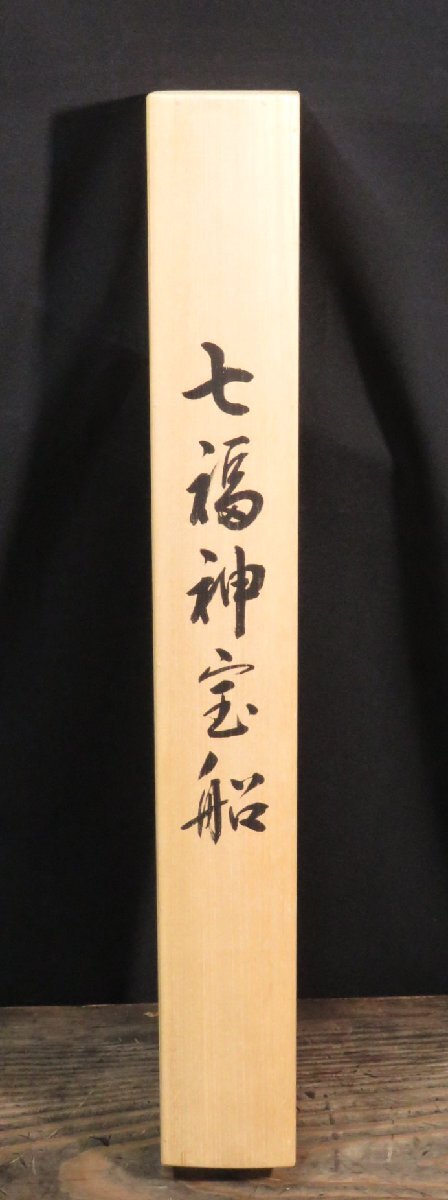 七福神宝船